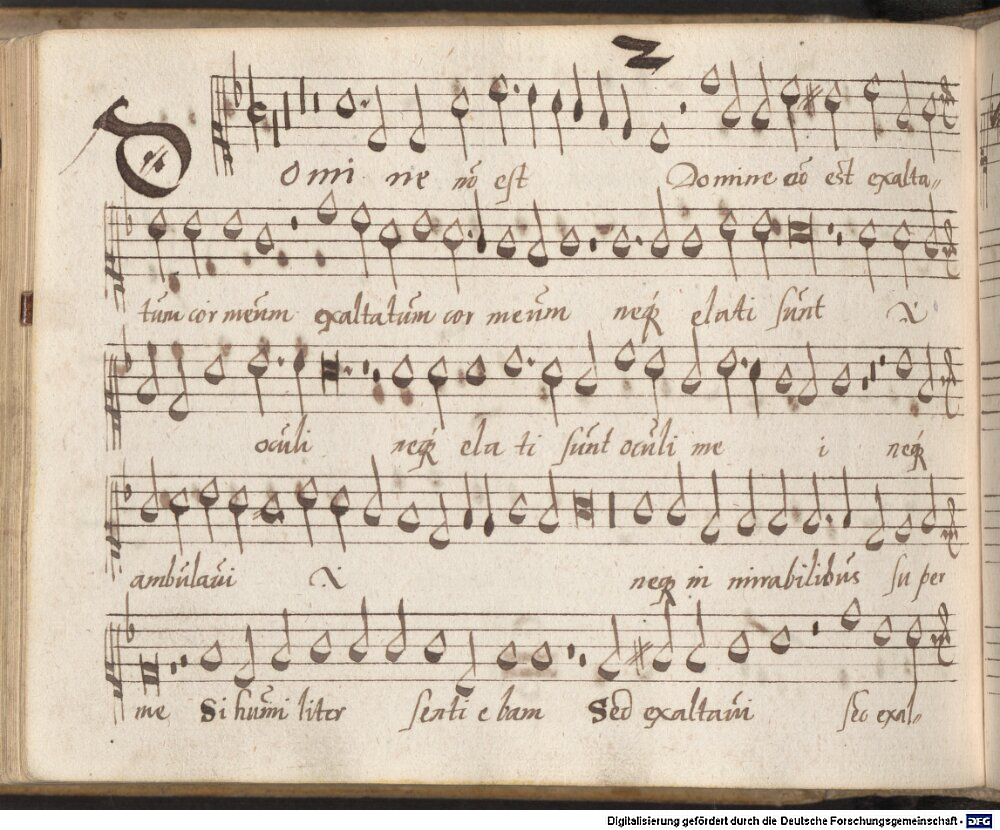 2
Domine nō est Domine nō est exalta„
tūm cor meūm exaltatūm cor meūm neqꝫ elati sūnt X
ocūli neqꝫ elati sūnt ocūli me i neqꝫ
ambūlaūi X neqꝫ in mirabilibūs super
me Si hūmiliter sentiebam Sed exaltaūi sed exal„
Digitalisierung gefördert durch die Deutsche Forschungsgemeinschaft - DFG